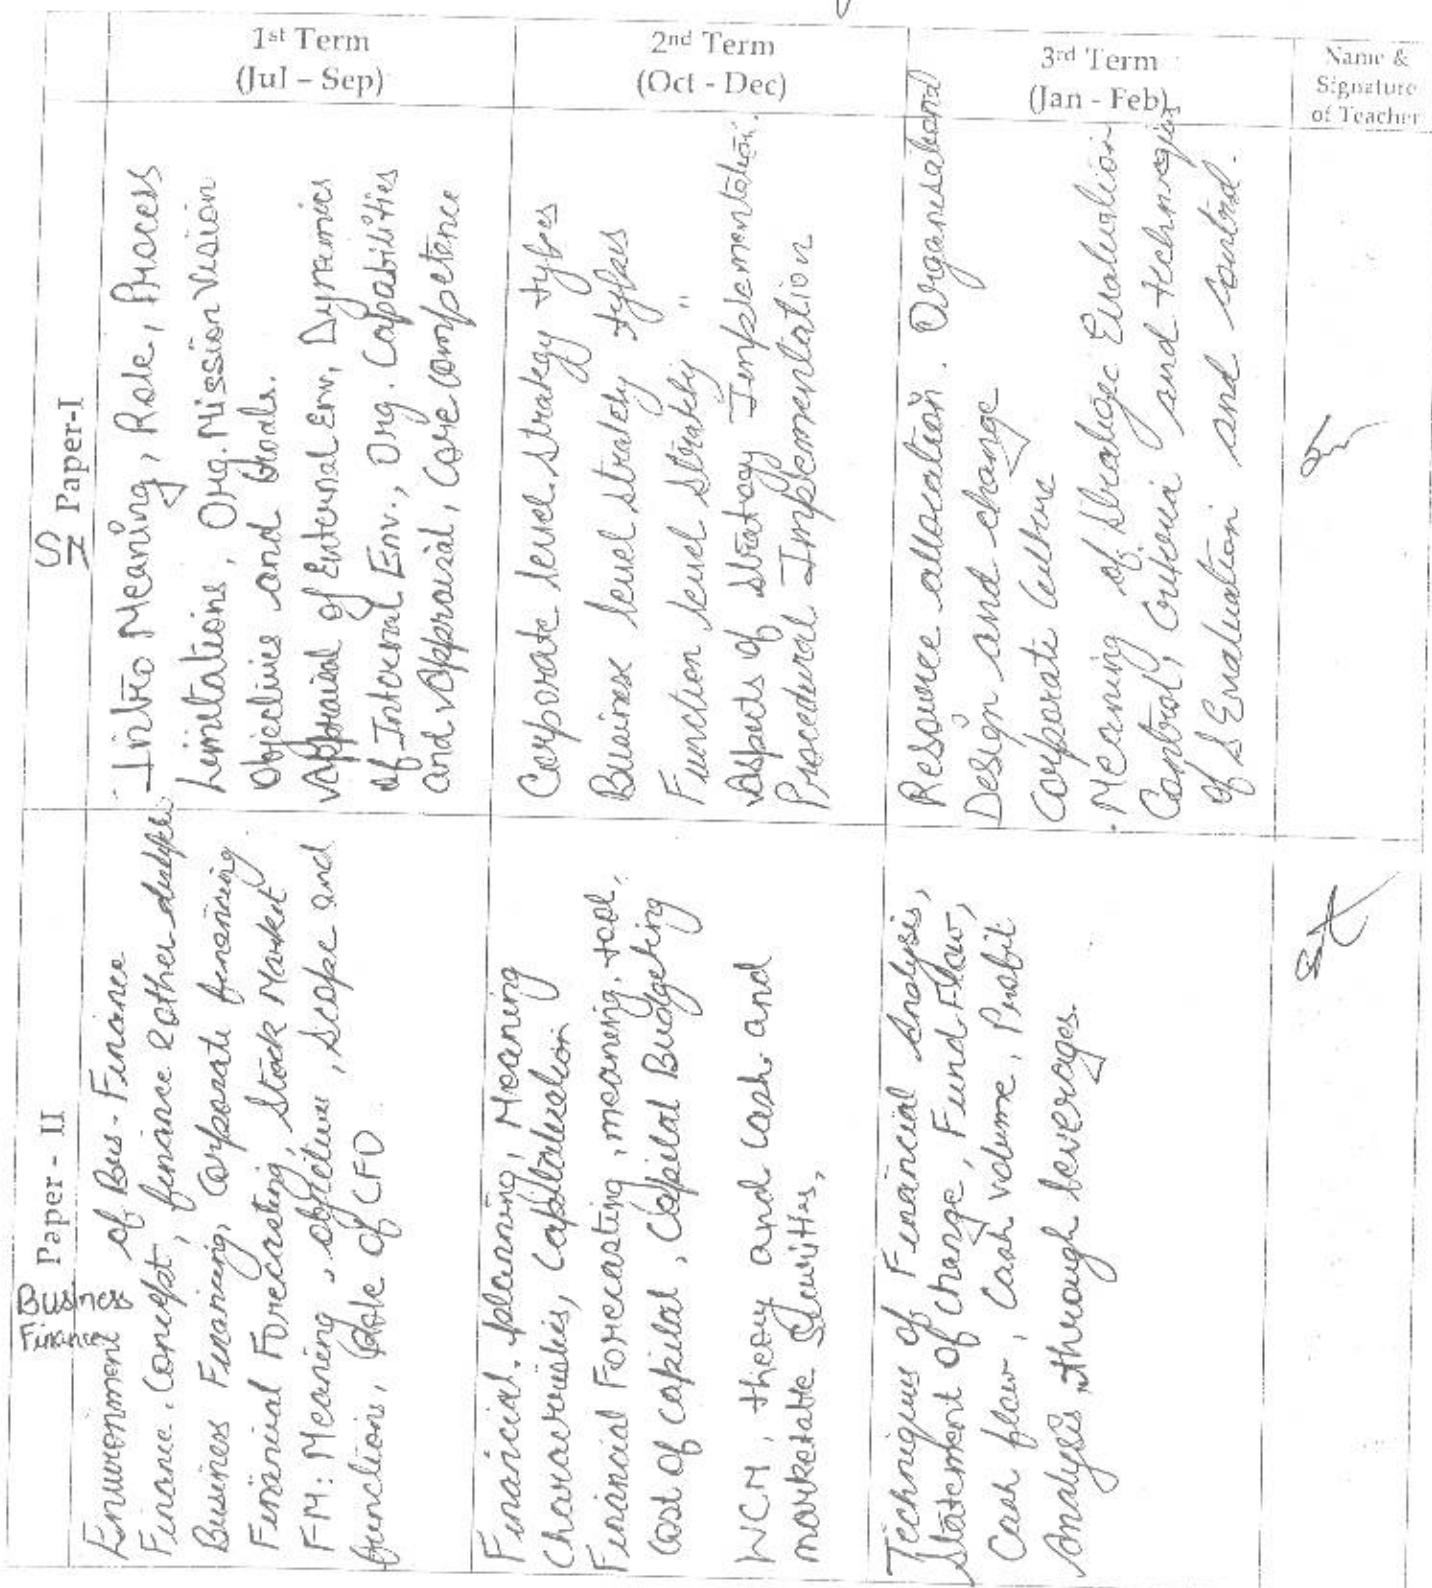 1st Term
(Jul – Sep)
2nd Term
(Oct - Dec)
3rd Term
(Jan - Feb)
Name &
Signature
of Teacher
Paper-I
Intro Meaning, Role, Process
Limitations, Org. Mission Vision
Objectives and Goals.
Appraisal of External Env, Dynamics
of Internal Env., Org. Capabilities
and Appraisal, Core Competence
Corporate level strategy types
Business level strategy types
Function level strategy "
Aspects of Strategy Implementation.
Procedural Implementation
Resource allocation. Organisational
Design and change
Corporate Culture
. Meaning of Strategic Evaluation
Control, Criteria and techniques
of S Evaluation and Control.
Paper - II
Business
Finance
Environment of Bus - Finance
Finance. Concept, finance & other
Business Financing, Corporate financing
Financial Forecasting, Stock Market
FM: Meaning, objective, Scope and
functions, Role of CFO
Financial planning, Meaning
Characteristics, Capitalization
Financial Forecasting, meaning, tool,
Cost of capital, Capital Budgeting
WCM, theory and cash and
marketable Securities,
Techniques of Financial Analysis,
Statement of Change, Fund Flow,
Cash flow, Cash volume, Profit
Analysis, through leverages.